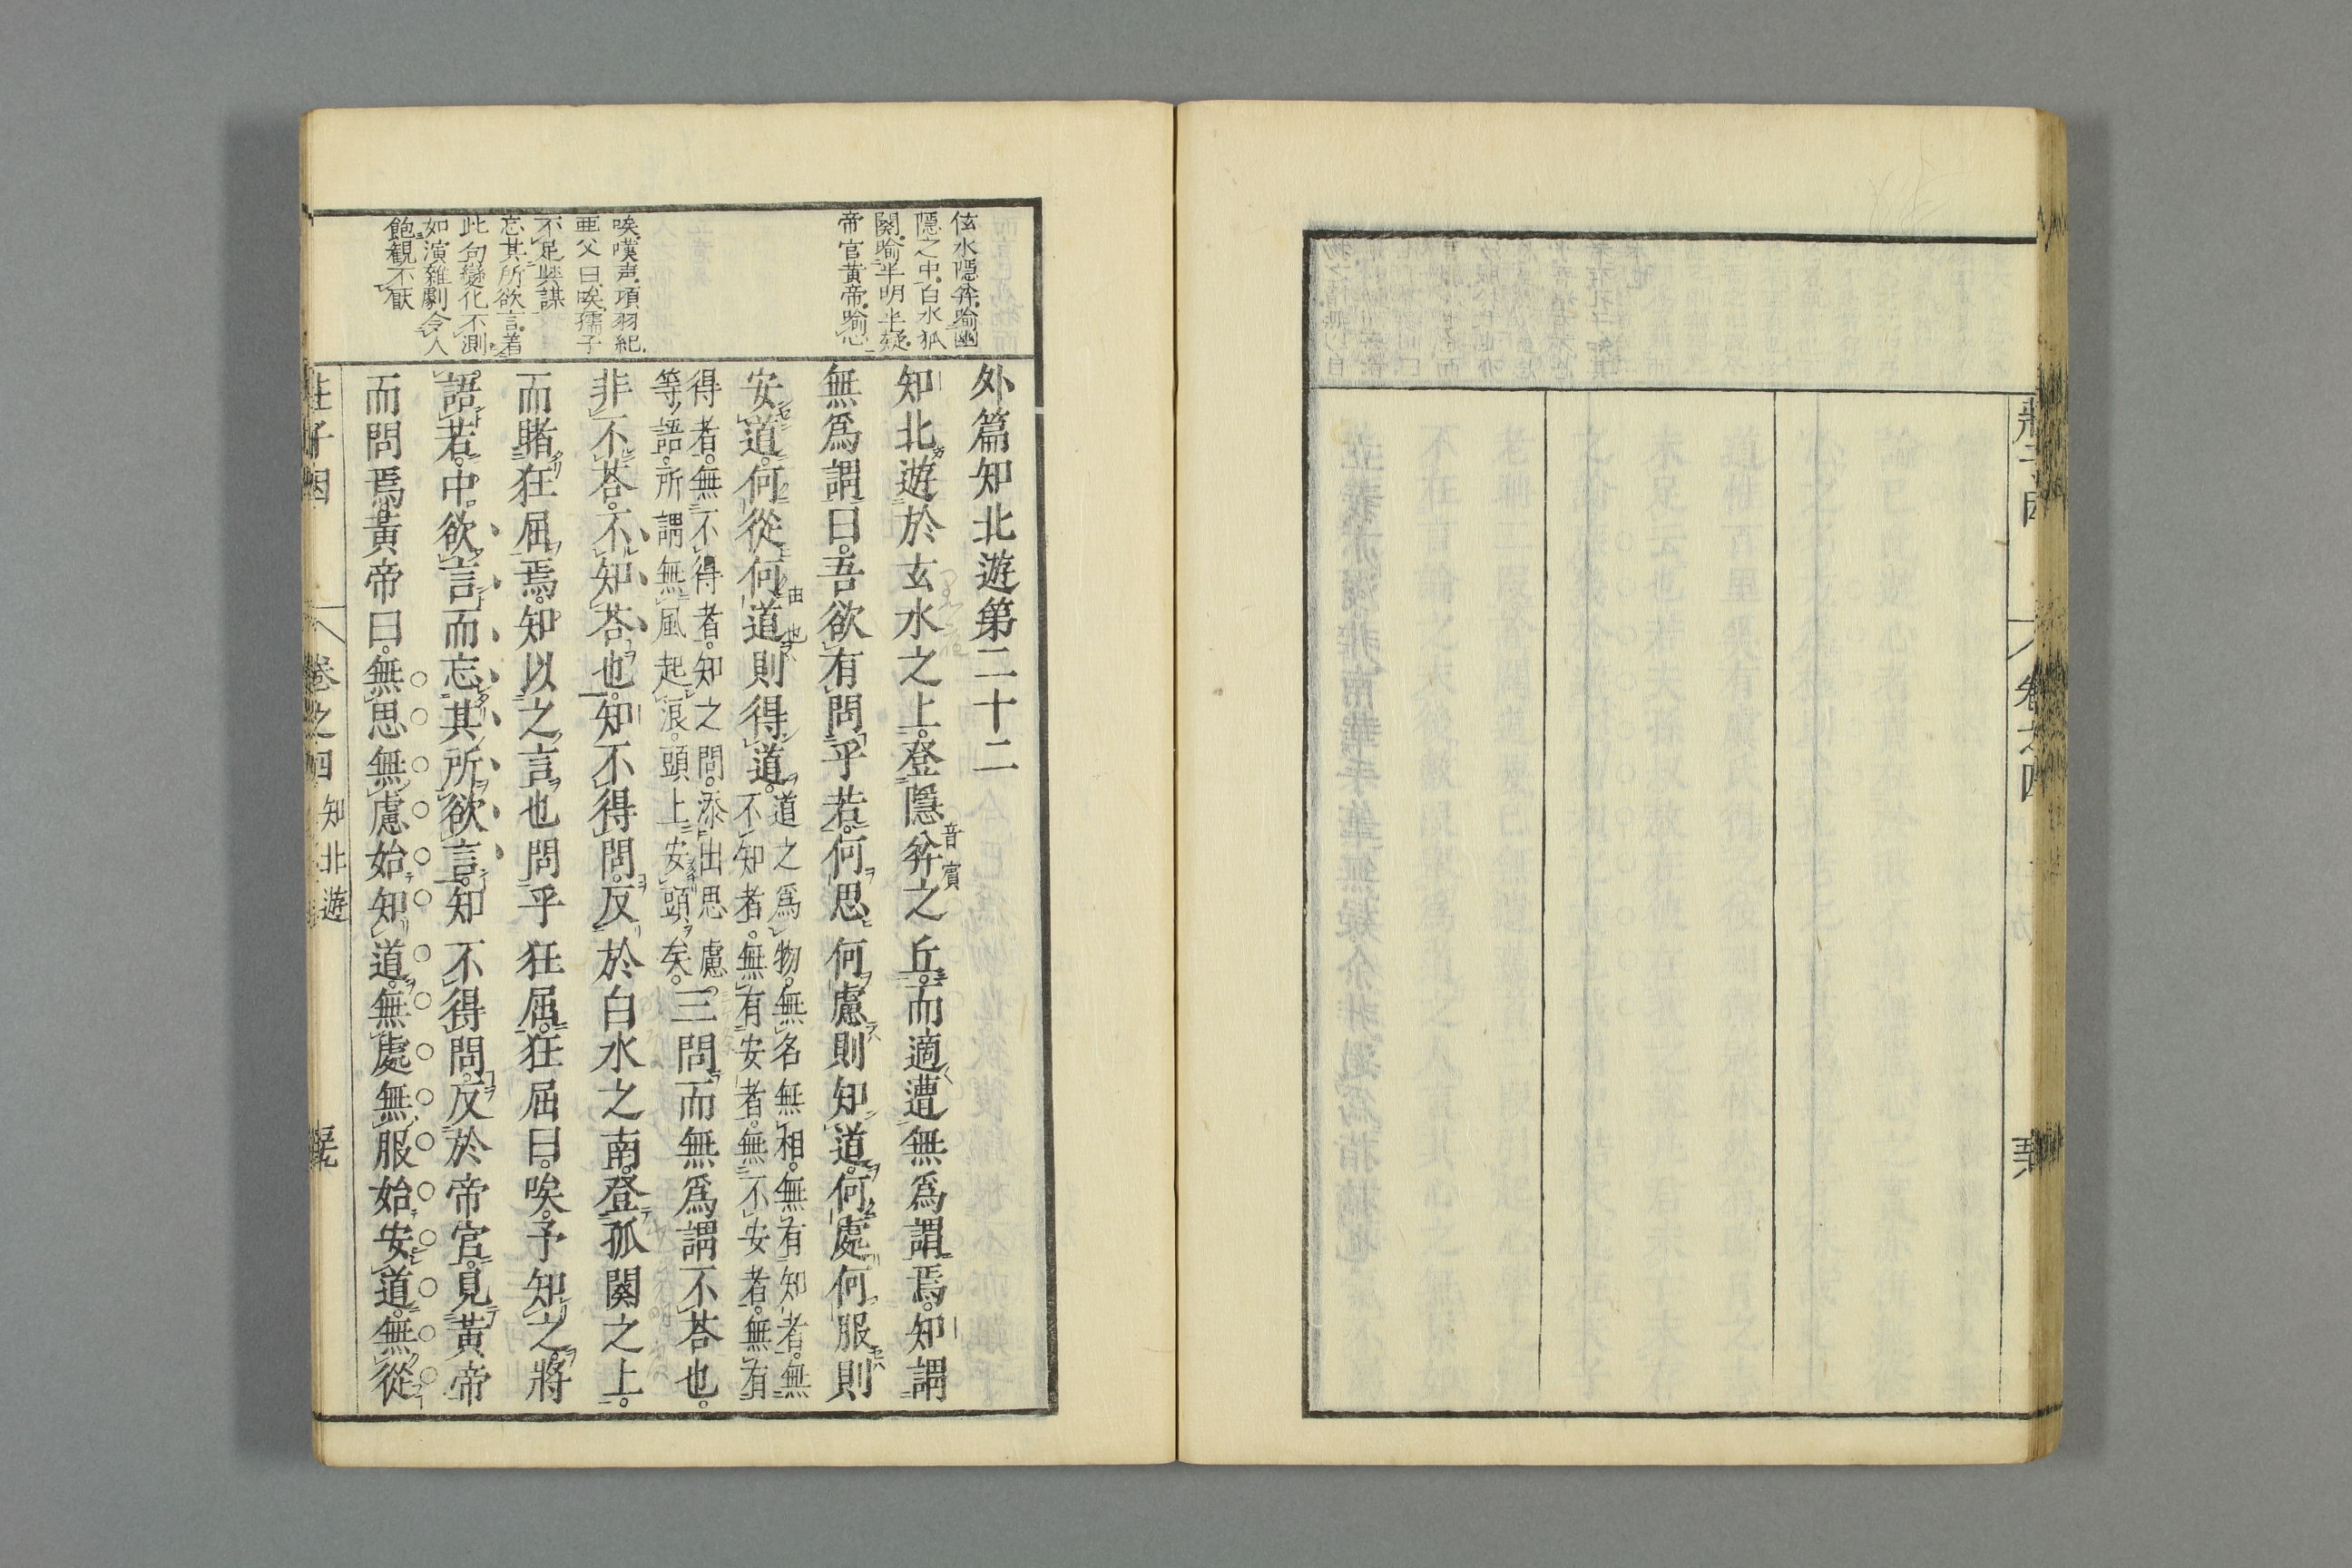 莊子因
卷之四
伭水隱弅喻幽
隱之中白水狐
闋喻半明半疑
帝宮黃帝喻心
唉嘆声項羽紀
亜父曰唉孺子
不足與謀
忘其所欲言着
此句變化不測
如演雜劇令人
飽観不厭
外篇知北遊第二十二
知北遊於玄水之上。登隱弅之丘。而適遭無爲謂焉。知謂
音賓
無爲謂曰。吾欲有問乎若。何思何慮則知道。何處何服則
安道。何從何道則得道。
由也
道之爲物。無名無相。無有知者。無
不知者。無有安者。無不安者。無有
得者。無不得者。知之問。添出思慮。
等語。所謂無風起浪。頭上安頭矣。
三問而無爲謂不荅也。
非不荅。不知荅也。知不得問。反於白水之南。登狐闋之上。
而睹狂屈焉。知以之言也問乎狂屈。狂屈曰。唉。予知之。將
語若。中欲言而忘其所欲言。知不得問。反於帝宮。見黃帝
而問焉。黃帝曰。無思無慮始知道。無處無服始安道。無從
莊子因
卷之四
知北遊